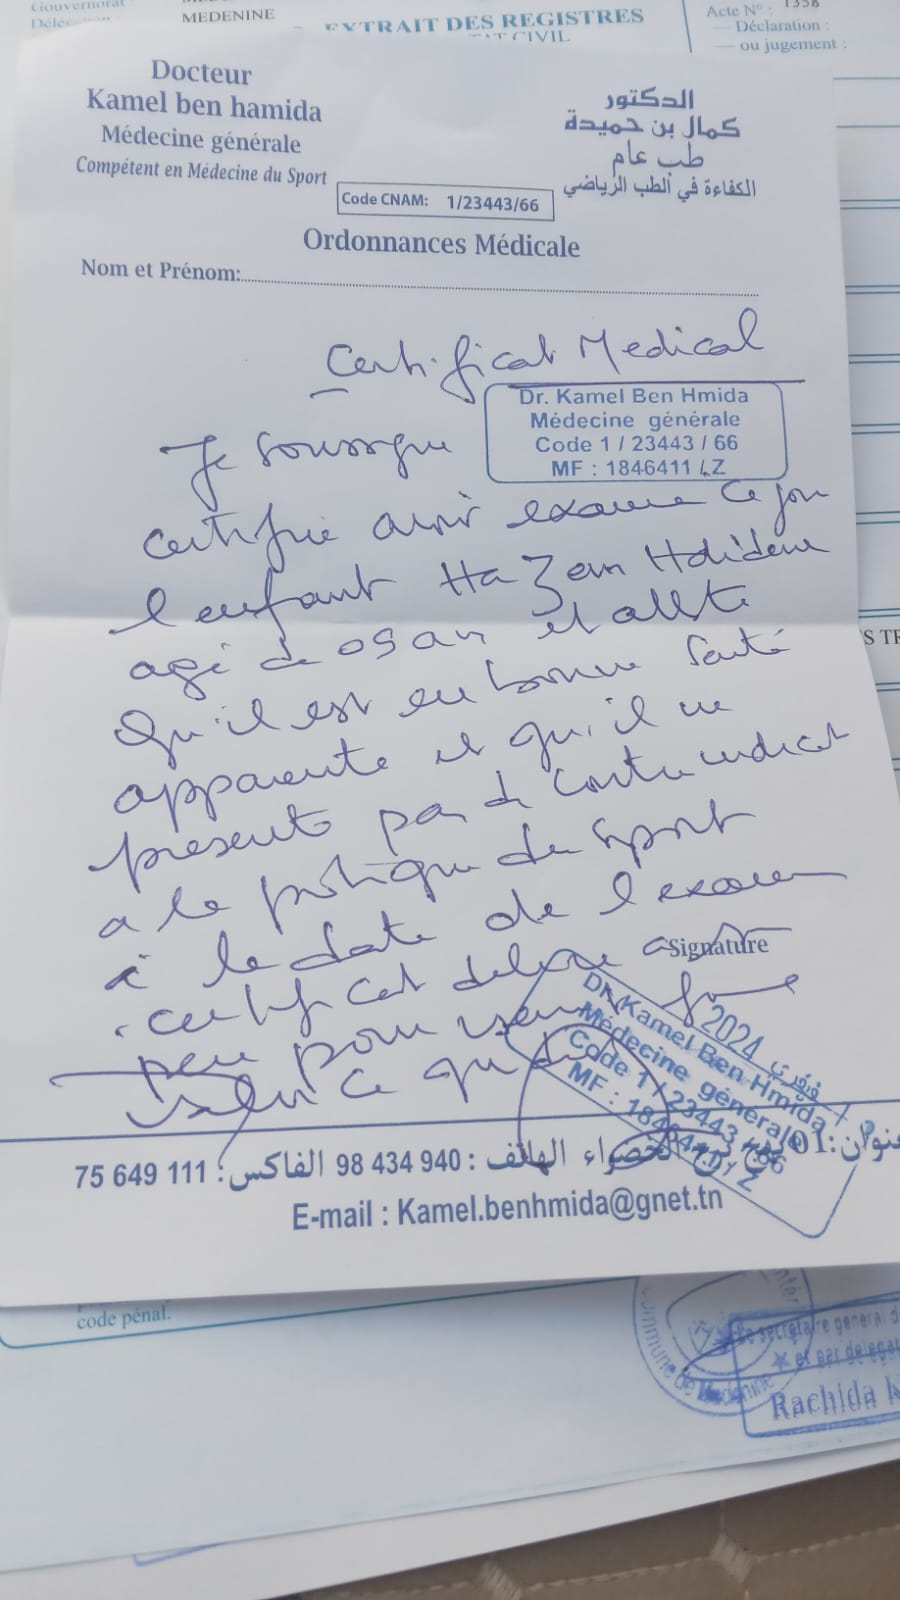 Gouvernorat :
MEDENINE
EXTRAIT DES REGISTRES
Acte N° : 1358
— Déclaration :
— ou jugement :
Docteur
Kamel ben hamida
Médecine générale
Compétent en Médecine du Sport
الدكتور
كمال بن حميدة
طب عام
الكفاءة في الطب الرياضي
Code CNAM: 1/23443/66
Ordonnances Médicale
Nom et Prénom:
Certificat Medical
Dr. Kamel Ben Hmida
Médecine générale
Code 1 / 23443 / 66
MF : 1846411 /.Z
Je soussigne
certifie avoir examine ce jour
l'enfant Hazem
age de 09 an et atteste
qu'il est en bonne santé
apparente et qu'il ne
presente pas de contre indicat
a la pratique du sport
à la date de l'examen
certificat delivre
Signature
pour
valoir ce que
2024
Dr. Kamel Ben Hmida
Médecine générale
Code 1 / 23443 / 66
MF :
الهاتف : 98 434 940 الفاكس : 75 649 111
E-mail : Kamel.benhmida@gnet.tn
code pénal.
Commune de Medenine
secrétaire general
et par delegat
Rachida